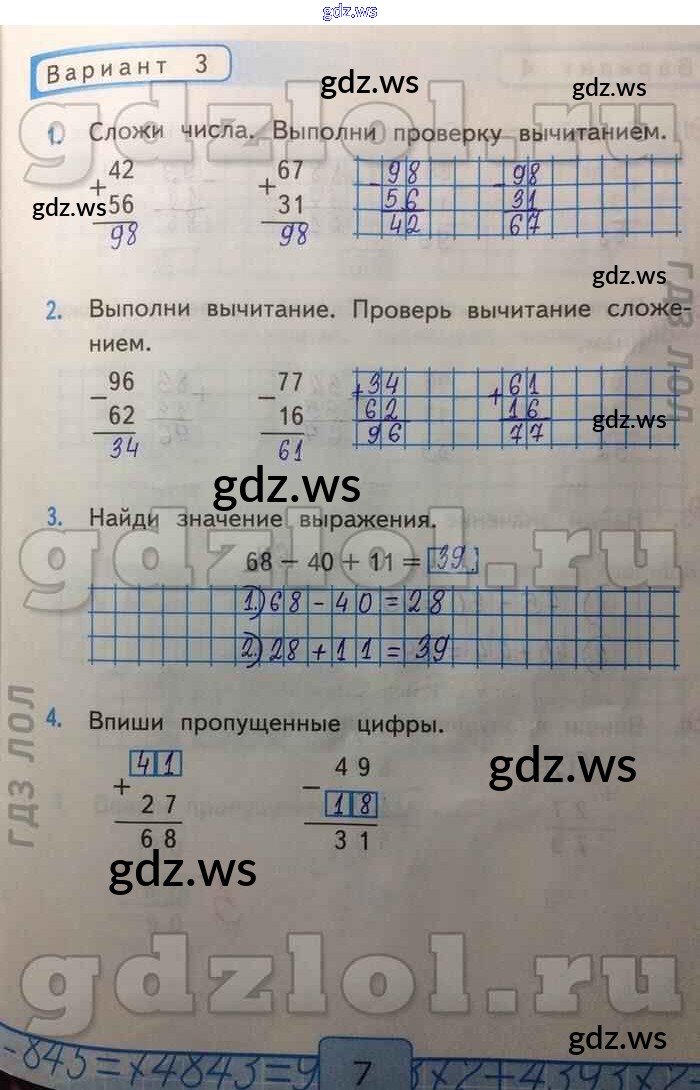 gdz.ws
Вариант 3
gdz.ws
gdz.ws
gdzlol.ru
1. Сложи числа. Выполни проверку вычитанием.
42 67 98 98
+ + - -
56 31 56 31
98 98 42 67
gdz.ws
gdz.ws
2. Выполни вычитание. Проверь вычитание сложе-
нием.
96 77 34 61
− − + +
62 16 62 16
34 61 96 77
gdz.ws
gdz.ws
ГДЗ ЛОЛ
3. Найди значение выражения.
gdzlol.ru
68 − 40 + 11 = 39.
1.) 68 - 40 = 28
2.) 28 + 11 = 39
4. Впиши пропущенные цифры.
41 49
+ −
27 18
68 31
gdz.ws
gdz.ws
ГДЗ ЛОЛ
gdzlol.ru
gdz.ws
7